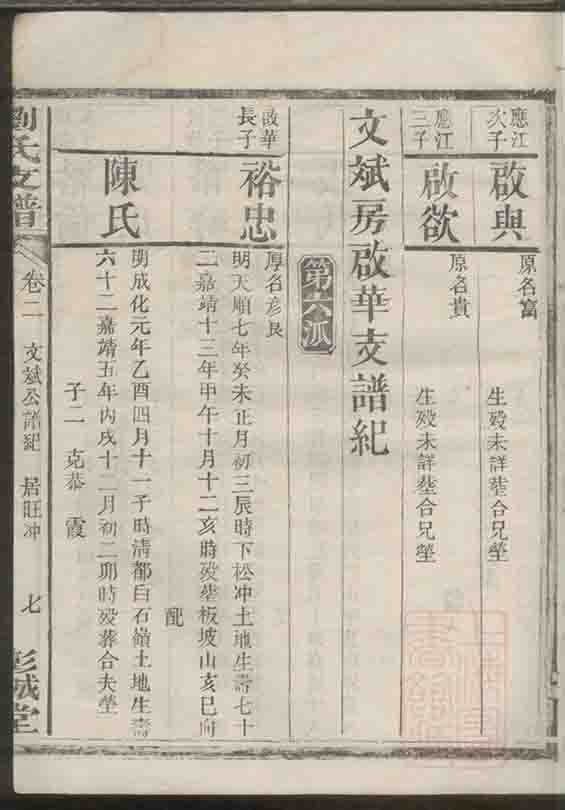 應江
次子
啟與
原名富
生歿未詳塟合兄塋
應江
三子
啟欲
原名貴
生歿未詳塟合兄塋
文斌房啟華支譜紀
第六派
啟華
長子
裕忠
原名彥良
明天順七年癸未正月初三辰時下松冲土地生壽七十
二嘉靖十三年甲午十月十二亥時歿塟板坡山亥巳向
配
陳氏
明成化元年乙酉四月十一子時清都白石嶺土地生壽
六十二嘉靖五年丙戌十二月初二卯時歿葬合夫塋
子二 克恭 霞
劉氏支譜
卷二 文斌公譜紀 居旺冲 七
彭城堂